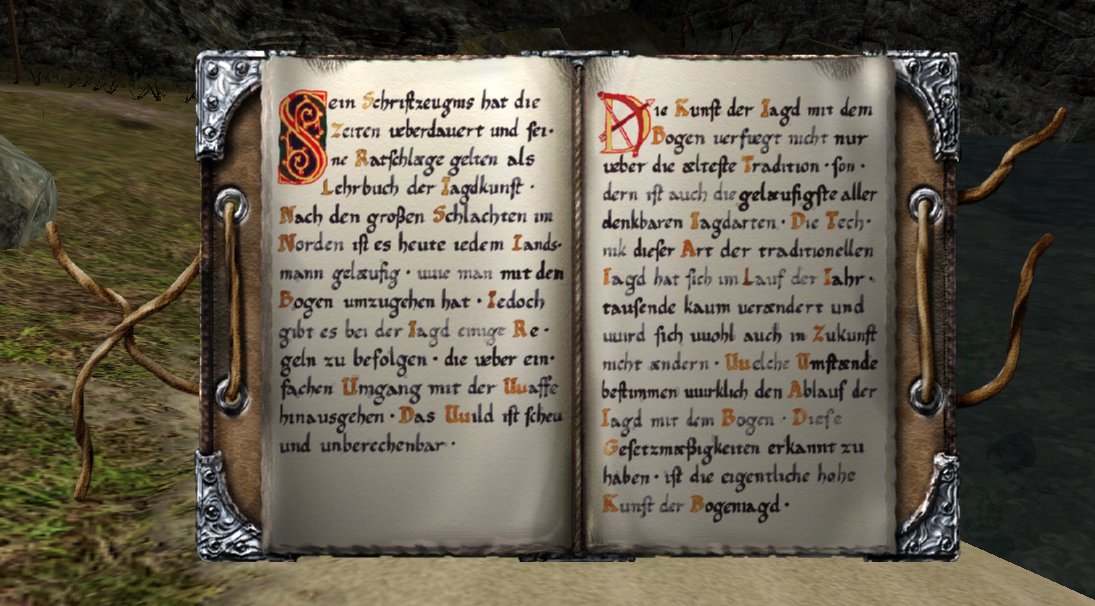 Sein Schriftzeugnis hat die
Zeiten ueberdauert und sei·
ne Ratschlæge gelten als
Lehrbuch der Iagdkunst ·
Nach den großen Schlachten im
Norden ist es heute iedem Lands·
mann gelæufig · uuie man mit den
Bogen umzugehen hat · Iedoch
gibt es bei der Iagd einige Re·
geln zu befolgen · die ueber ein·
fachen Umgang mit der Uuaffe
hinausgehen · Das Uuild ist scheu
und unberechenbar ·
Die Kunst der Iagd mit dem
Bogen uerfuegt nicht nur
ueber die ælteste Tradition · son·
dern ist auch die gelæufigste aller
denkbaren Iagdarten · Die Tech·
nik dieser Art der traditionellen
Iagd hat sich im Lauf der Iahr·
tausende kaum uerændert und
uuird sich uuohl auch in Zukunft
nicht ændern · Uuelche Umstænde
bestimmen uuirklich den Ablauf der
Iagd mit dem Bogen · Diese
Gesetzmæßigkeiten erkannt zu
haben · ist die eigentliche hohe
Kunst der Bogeniagd ·